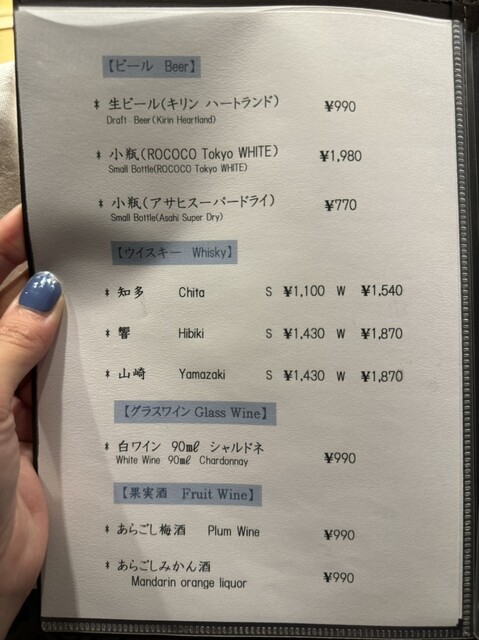 【ビール Beer】
* 生ビール(キリン ハートランド) ¥990
Draft Beer(Kirin Heartland)
* 小瓶(ROCOCO Tokyo WHITE) ¥1,980
Small Bottle(ROCOCO Tokyo WHITE)
* 小瓶(アサヒスーパードライ) ¥770
Small Bottle(Asahi Super Dry)
【ウイスキー Whisky】
* 知多 Chita S ¥1,100 W ¥1,540
* 響 Hibiki S ¥1,430 W ¥1,870
* 山崎 Yamazaki S ¥1,430 W ¥1,870
【グラスワイン Glass Wine】
* 白ワイン 90㎖ シャルドネ ¥990
White Wine 90㎖ Chardonnay
【果実酒 Fruit Wine】
* あらごし梅酒 Plum Wine ¥990
* あらごしみかん酒 ¥990
Mandarin orange liquor